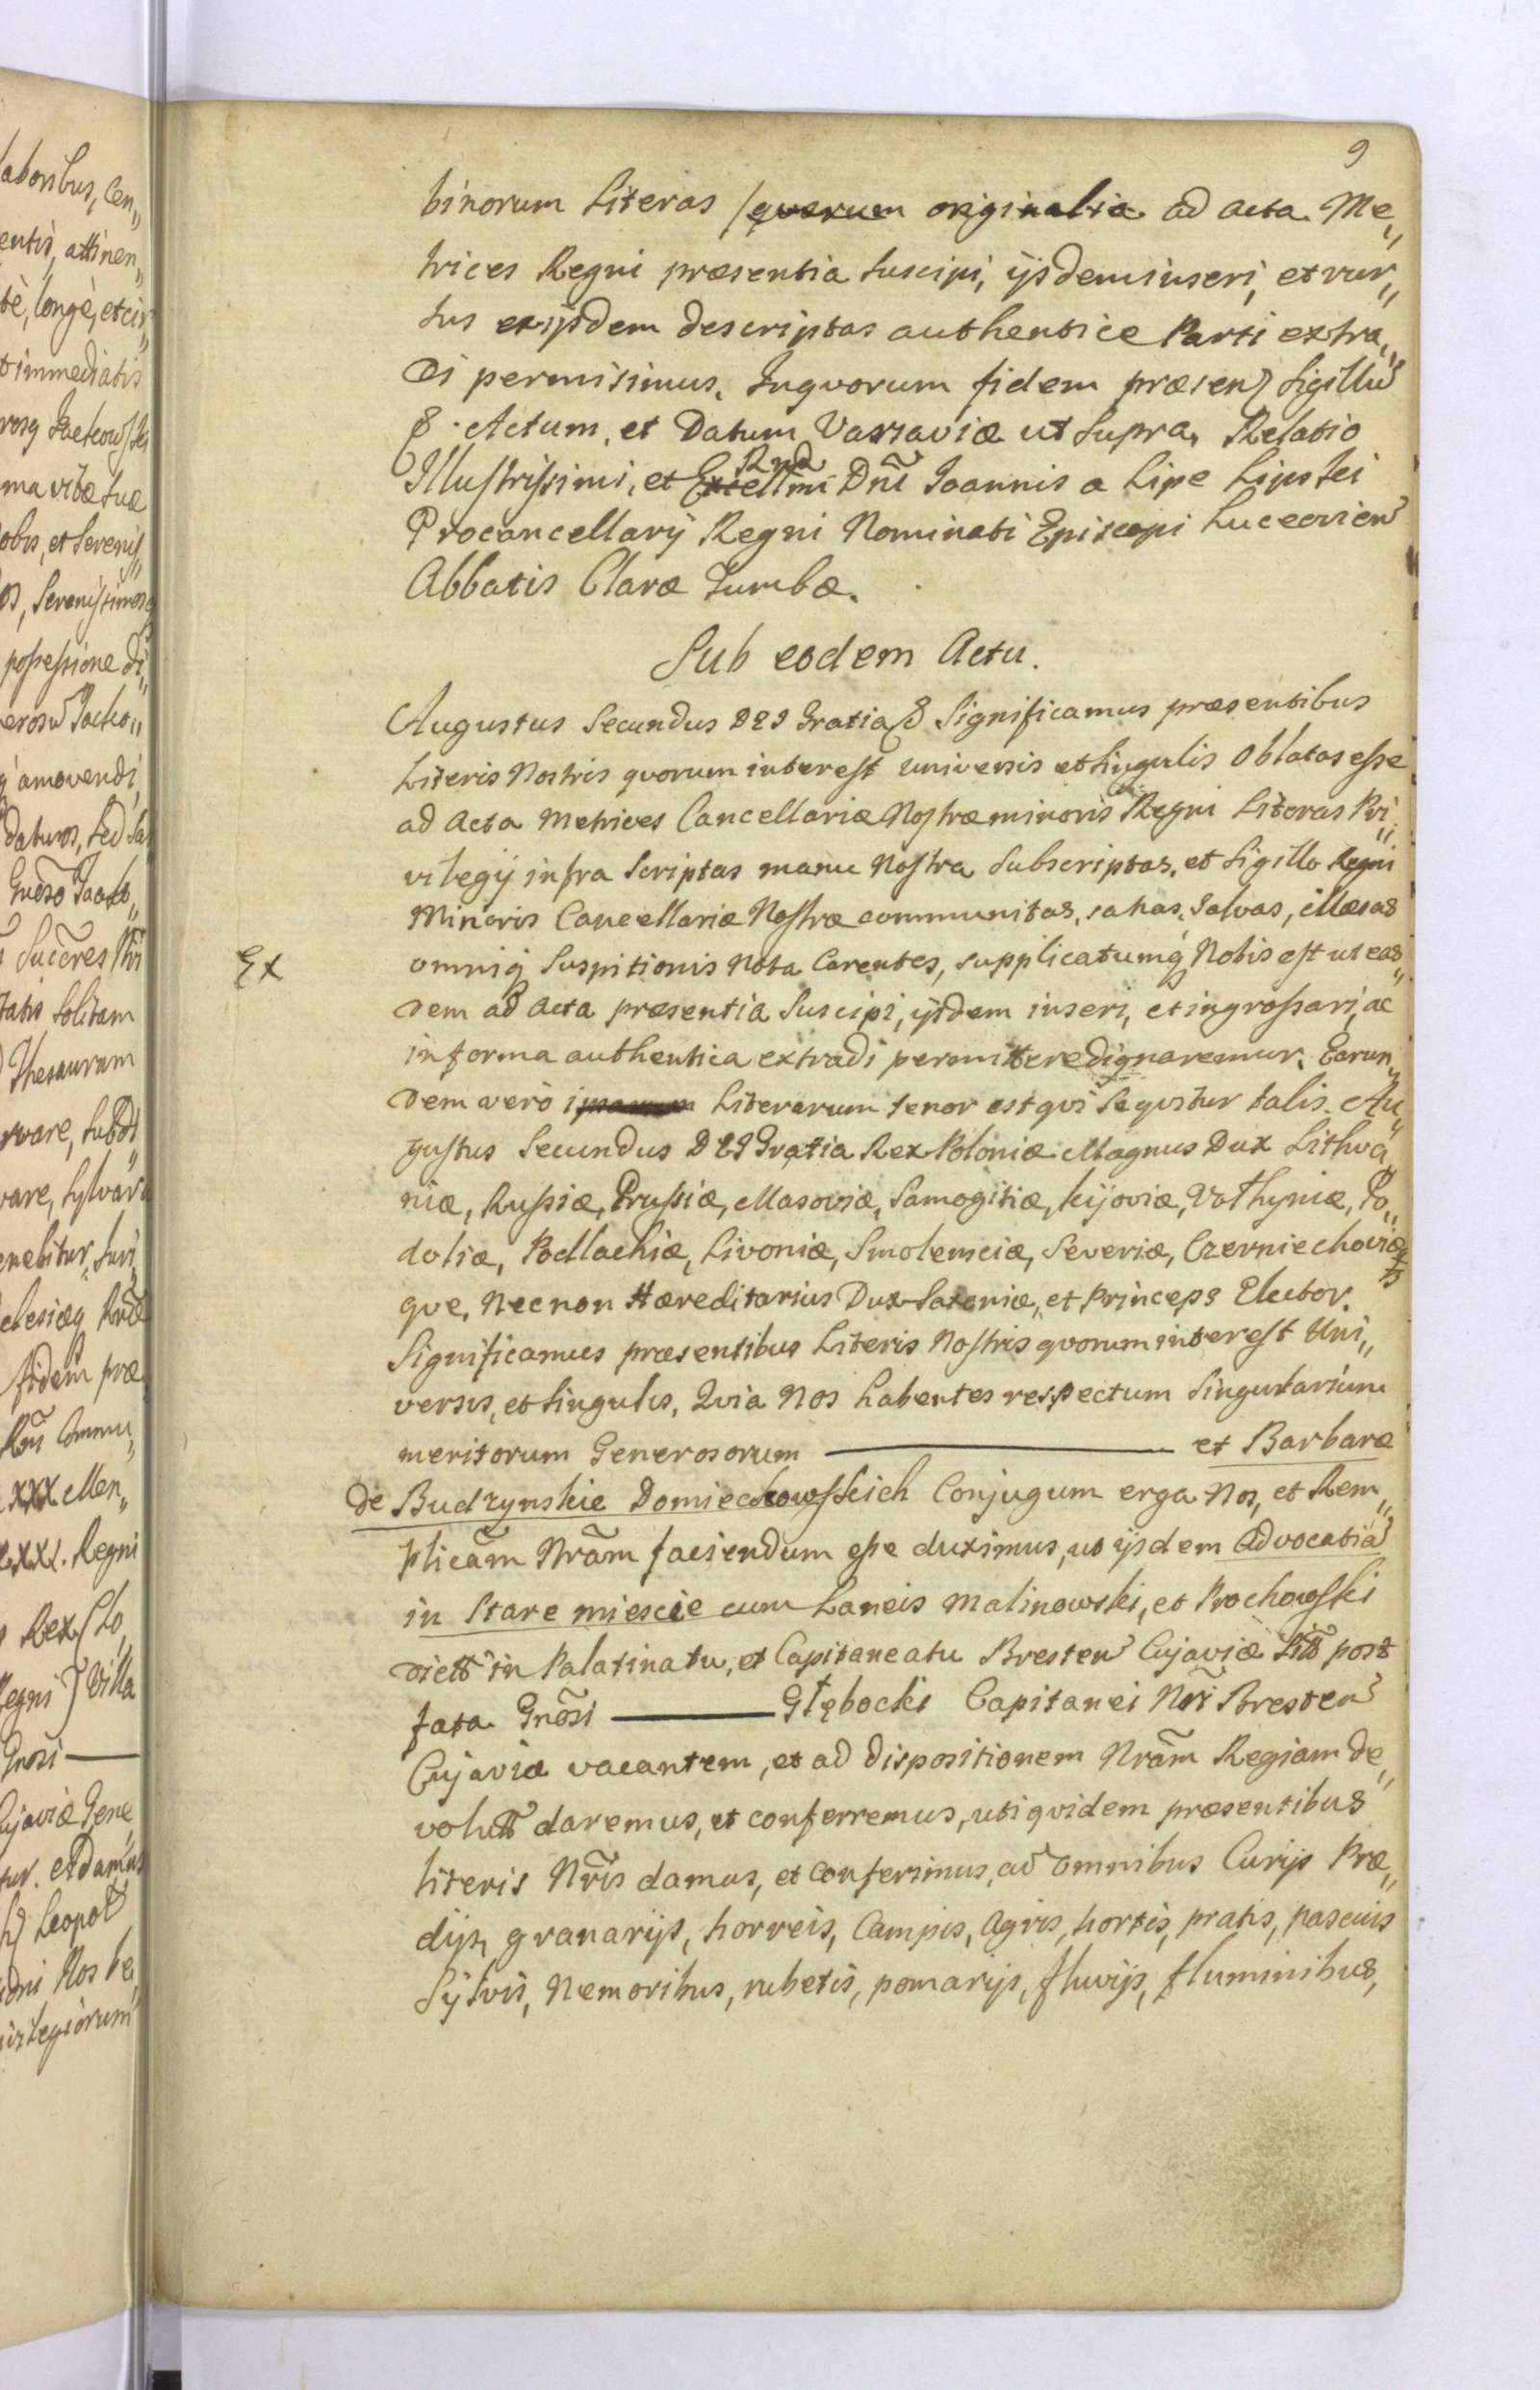 9
binorum Literas /quarum originalia ad acta Me„
trices Regni præsentia suscipi, ijsdem inseri, et rur„
sus ex ijsdem descriptas authentice Parti extra„
di permisimus. Inqvorum fidem præsen Sigillu
& Actum, et Datum Varsaviæ ut supra, Relatio
Illustrissimi, et Excellmi Rnd Dñi Joannis a Lipe Lipski
Procancellarÿ Regni Nominati Episcopi Luceorien
Abbatis Claræ Tumbæ.
Sub eodem Actu.
Augustus Secundus DEI Gratia & Significamus præsentibus
Literis Nostris qvorum interest universis et singulis Oblatas esse
ad Acta Metrices Cancellariæ Nostræ minoris Regni Literas Pri„
vilegÿ infra scriptas manu Nostra subscriptas, et Sigillo Regni
Minoris Cancellariæ Nostræ communitas, sanas, salvas, illæsas
Ex
omniq suspitionis nota carentes, supplicatumq Nobis est ut eas„
dem ad Acta præsentia suscipi, ijsdem inseri, et ingrossari, ac
in forma authentica extradi permittere dignaremur. Earun„
dem verò ipsarum Literarum tenor est qvi seqvitur talis. Au„
gustus Secundus DEI Gratia Rex Poloniæ Magnus Dux Lithva„
niæ, Russiæ, Prussiæ, Masoviæ, Samogitiæ, kijoviæ, Volhyniæ, Po„
doliæ, Podlachiæ, Livoniæ, Smolensciæ, Severiæ, Czerniechoviæ
qve, Necnon Hæreditarius Dux Saxoniæ, et Princeps Elector.
Significamus præsentibus Literis Nostris qvorum interest Uni„
versis, et singulis, Qvia Nos habentes respectum singularium
meritorum Generosorum ——— et Barbaræ
de Budzynskie Domiechowskich Conjugum erga Nos, et Rem„
plicam Nram faciendum esse duximus, ut ijsdem Advocatia
in Stare miescie cum Laneis Malinowski, et Prochowski
dictt in Palatinatu, et Capitaneatu Bresten Cujaviæ Sitt post
fata Gnosi ——— Głębocki Capitanei Nri Bresten
Cujaviæ vacantem, et ad dispositionem Nram Regiam de„
volutt daremus, et conferremus, uti qvidem præsentibus
literis Nris damus, et conferimus, cum omnibus Curijs Præ„
dijs, granarijs, horreis, Campis, Agris, hortis, pratis, pascuis
Sylvis, Nemoribus, rubetis, pomarijs, fluvijs, fluminibus,